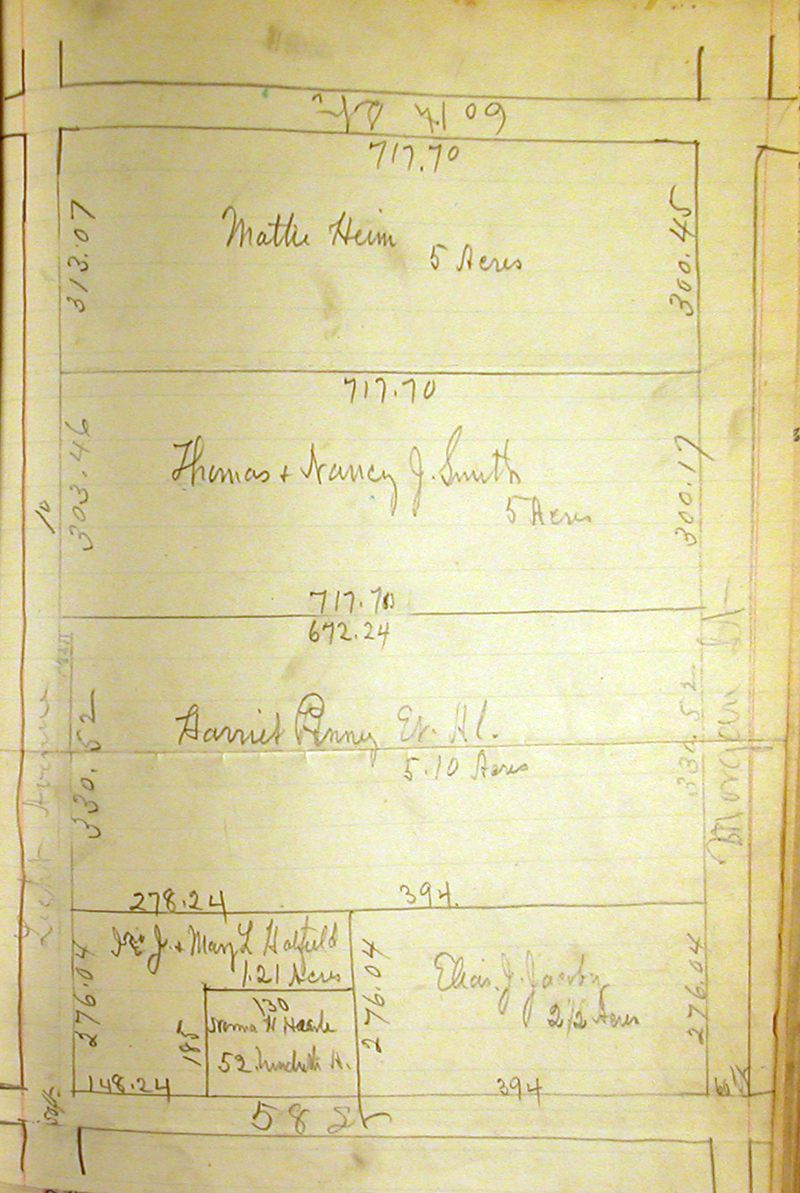 60 ft
717.70
313.07
Mattie Heim
5 Acres
300.45
717.70
303.46
Thomas + Nancy J. Smith
5 Acres
300.17
10
717.70
672.24
330.52
Harriet Penney Et. Al.
5.10 Acres
330.52
Morgan St
Avenue
278.24
394.
276.04
J. + Mary L Hatfield
1.21 Acres
276.04
Elias. J. Jacoby
2 1/2 Acres
276.04
130
185
Norma H
52
148.24
394
58 St